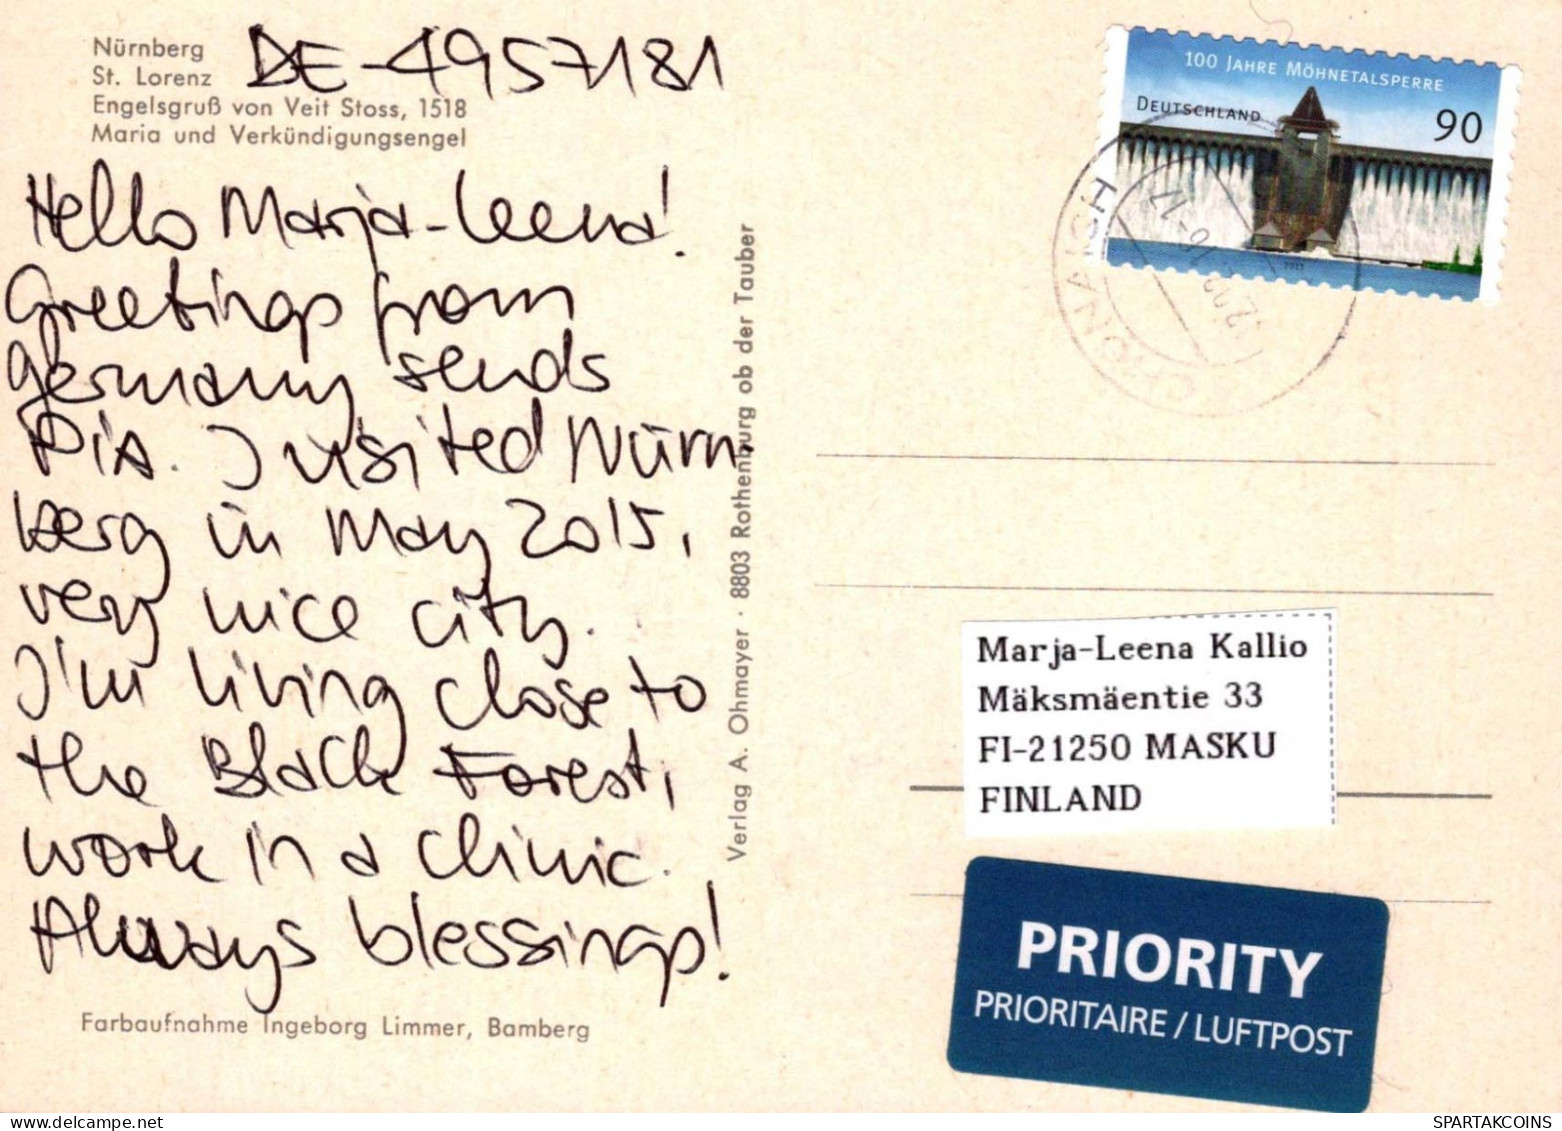 Nürnberg
St. Lorenz
Engelsgruß von Veit Stoss, 1518
Maria und Verkündigungsengel
DE-4957181
Hello Marja-Leena!
Greetings from
Germany sends
Pia. I visited Nürn-
berg in May 2015,
very nice city.
I'm living close to
the Black Forest,
work in a clinic.
Always blessings!
Farbaufnahme Ingeborg Limmer, Bamberg
Verlag A. Ohmayer · 8803 Rothenburg ob der Tauber
100 JAHRE MÖHNETALSPERRE
DEUTSCHLAND
90
2013
Marja-Leena Kallio
Mäksmäentie 33
FI-21250 MASKU
FINLAND
PRIORITY
PRIORITAIRE / LUFTPOST
SPARTAKCOINS